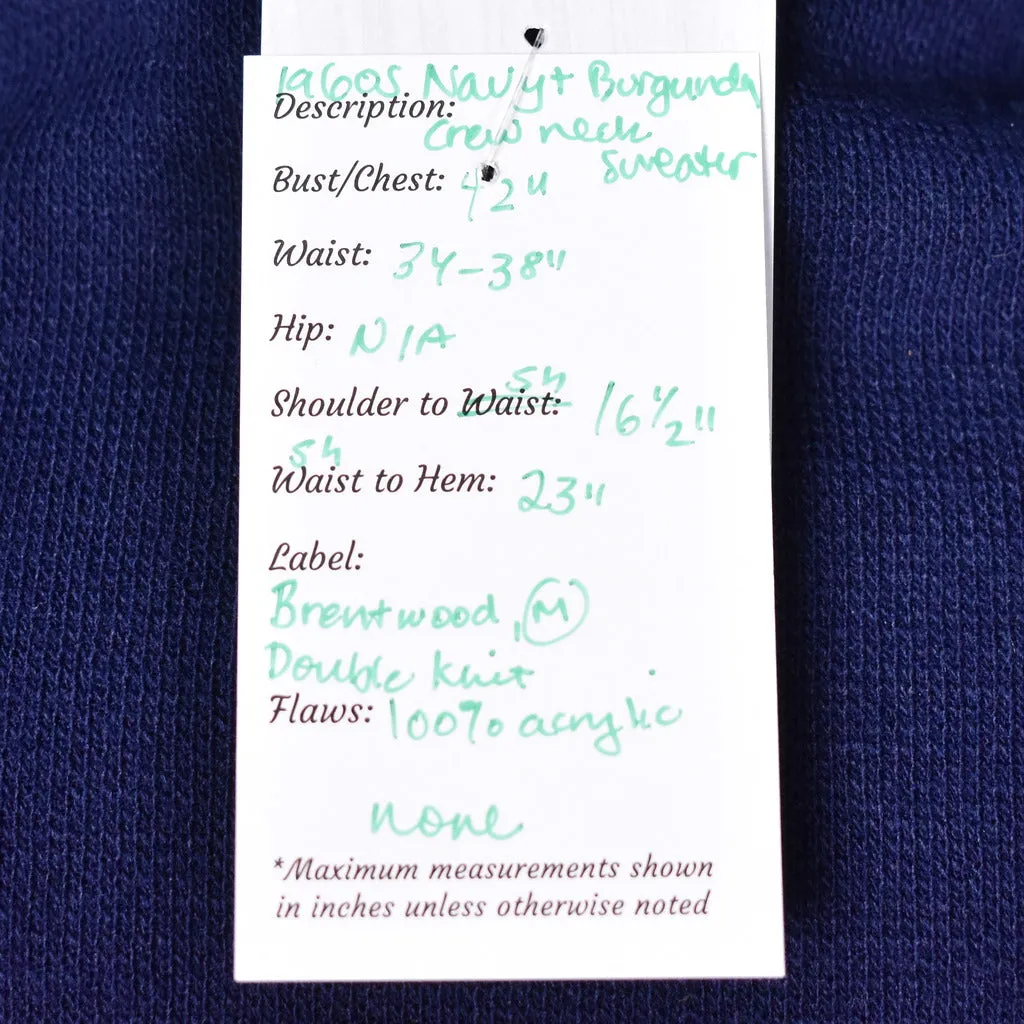 1960s Navy + Burgundy
Description:
crew neck
sweater
Bust/Chest: 42"
Waist: 34-38"
Hip: N/A
sh
Shoulder to Waist: 16 1/2"
sh
Waist to Hem: 23"
Label:
Brentwood, M
Double Knit
Flaws: 100% acrylic
none
*Maximum measurements shown
in inches unless otherwise noted